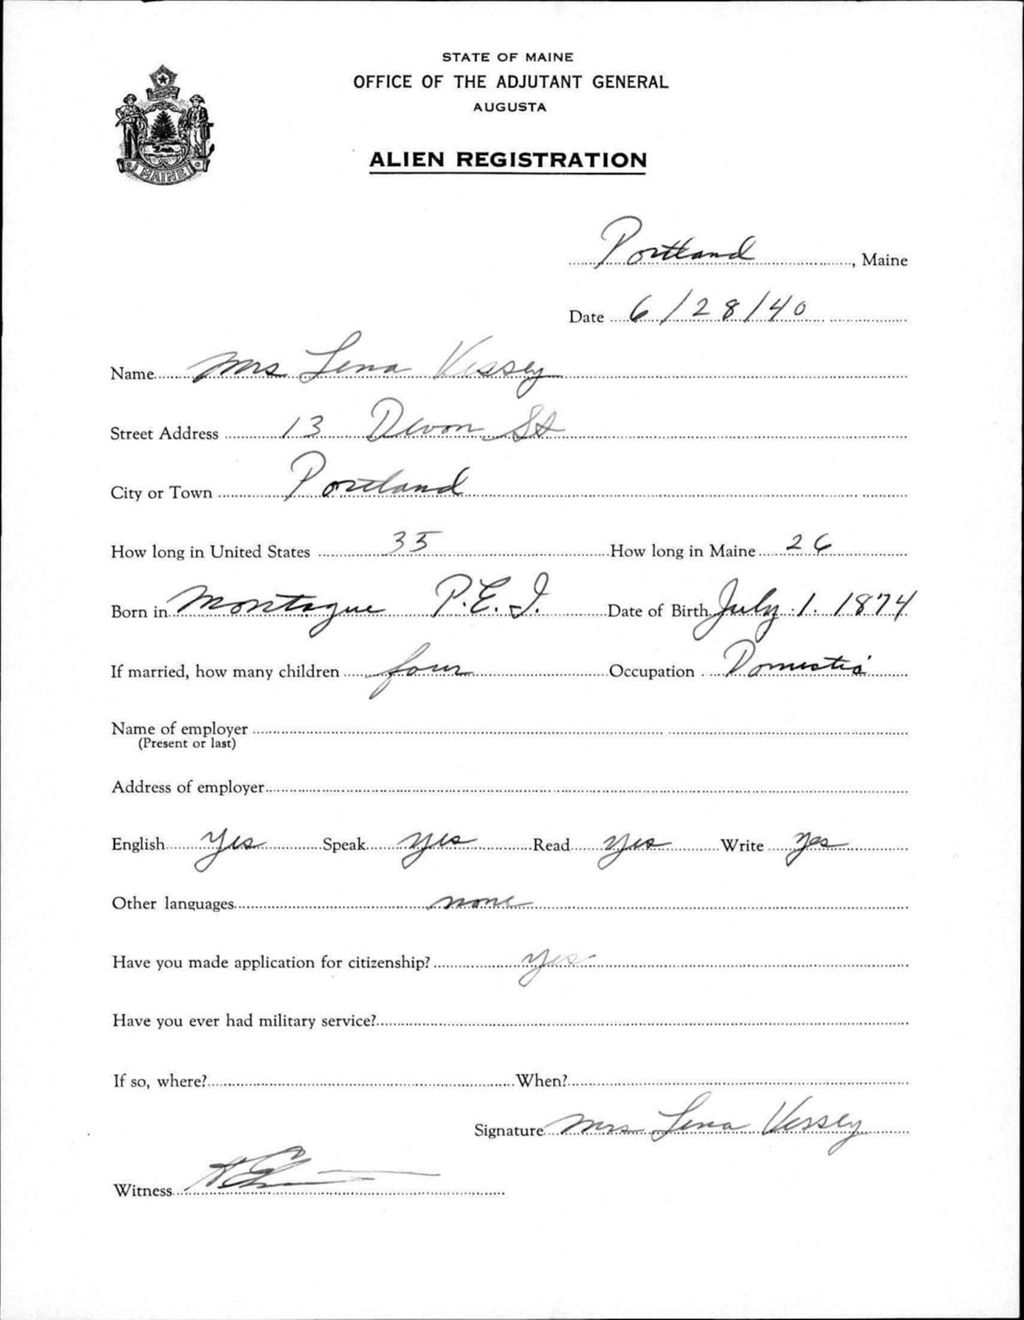 STATE OF MAINE
OFFICE OF THE ADJUTANT GENERAL
AUGUSTA
MAINE
ALIEN REGISTRATION
Portland, Maine
Date 6/28/40
Name Mrs Lena Vessey
Street Address 13 Devon St
City or Town Portland
How long in United States 35 How long in Maine 26
Born in Montague P.E.I. Date of Birth July 1. 1874
If married, how many children four Occupation Domestic
Name of employer
(Present or last)
Address of employer
English Yes Speak Yes Read Yes Write Yes
Other languages none
Have you made application for citizenship? Yes
Have you ever had military service?
If so, where? When?
Signature Mrs Lena Vessey
Witness